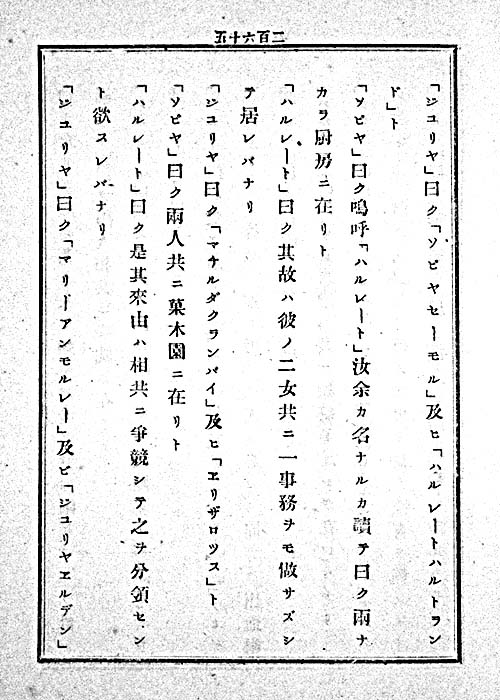 二百六十五
「ジユリヤ」曰ク「ソピヤセーモル」及ヒ「ハルレートハルトラン
ド」ト
「ソピヤ」曰ク嗚呼「ハルレート」汝余カ名ナルカ讀テ曰ク兩ナ
カラ厨房ニ在リト
「ハルレート」曰ク其故ハ彼ノ二女共ニ一事務ヲモ做サズシ
テ居レバナリ
「ジユリヤ」曰ク「マチルダクランバイ」及ヒ「ヱリザロツス」ト
「ソピヤ」曰ク兩人共ニ菓木園ニ在リト
「ハルレート」曰ク是其來由ハ相共ニ爭競シテ之ヲ分領セン
ト欲スレバナリ
「ジユリヤ」曰ク「マリーアンモルレー」及ビ「ジユリヤヱルデン」